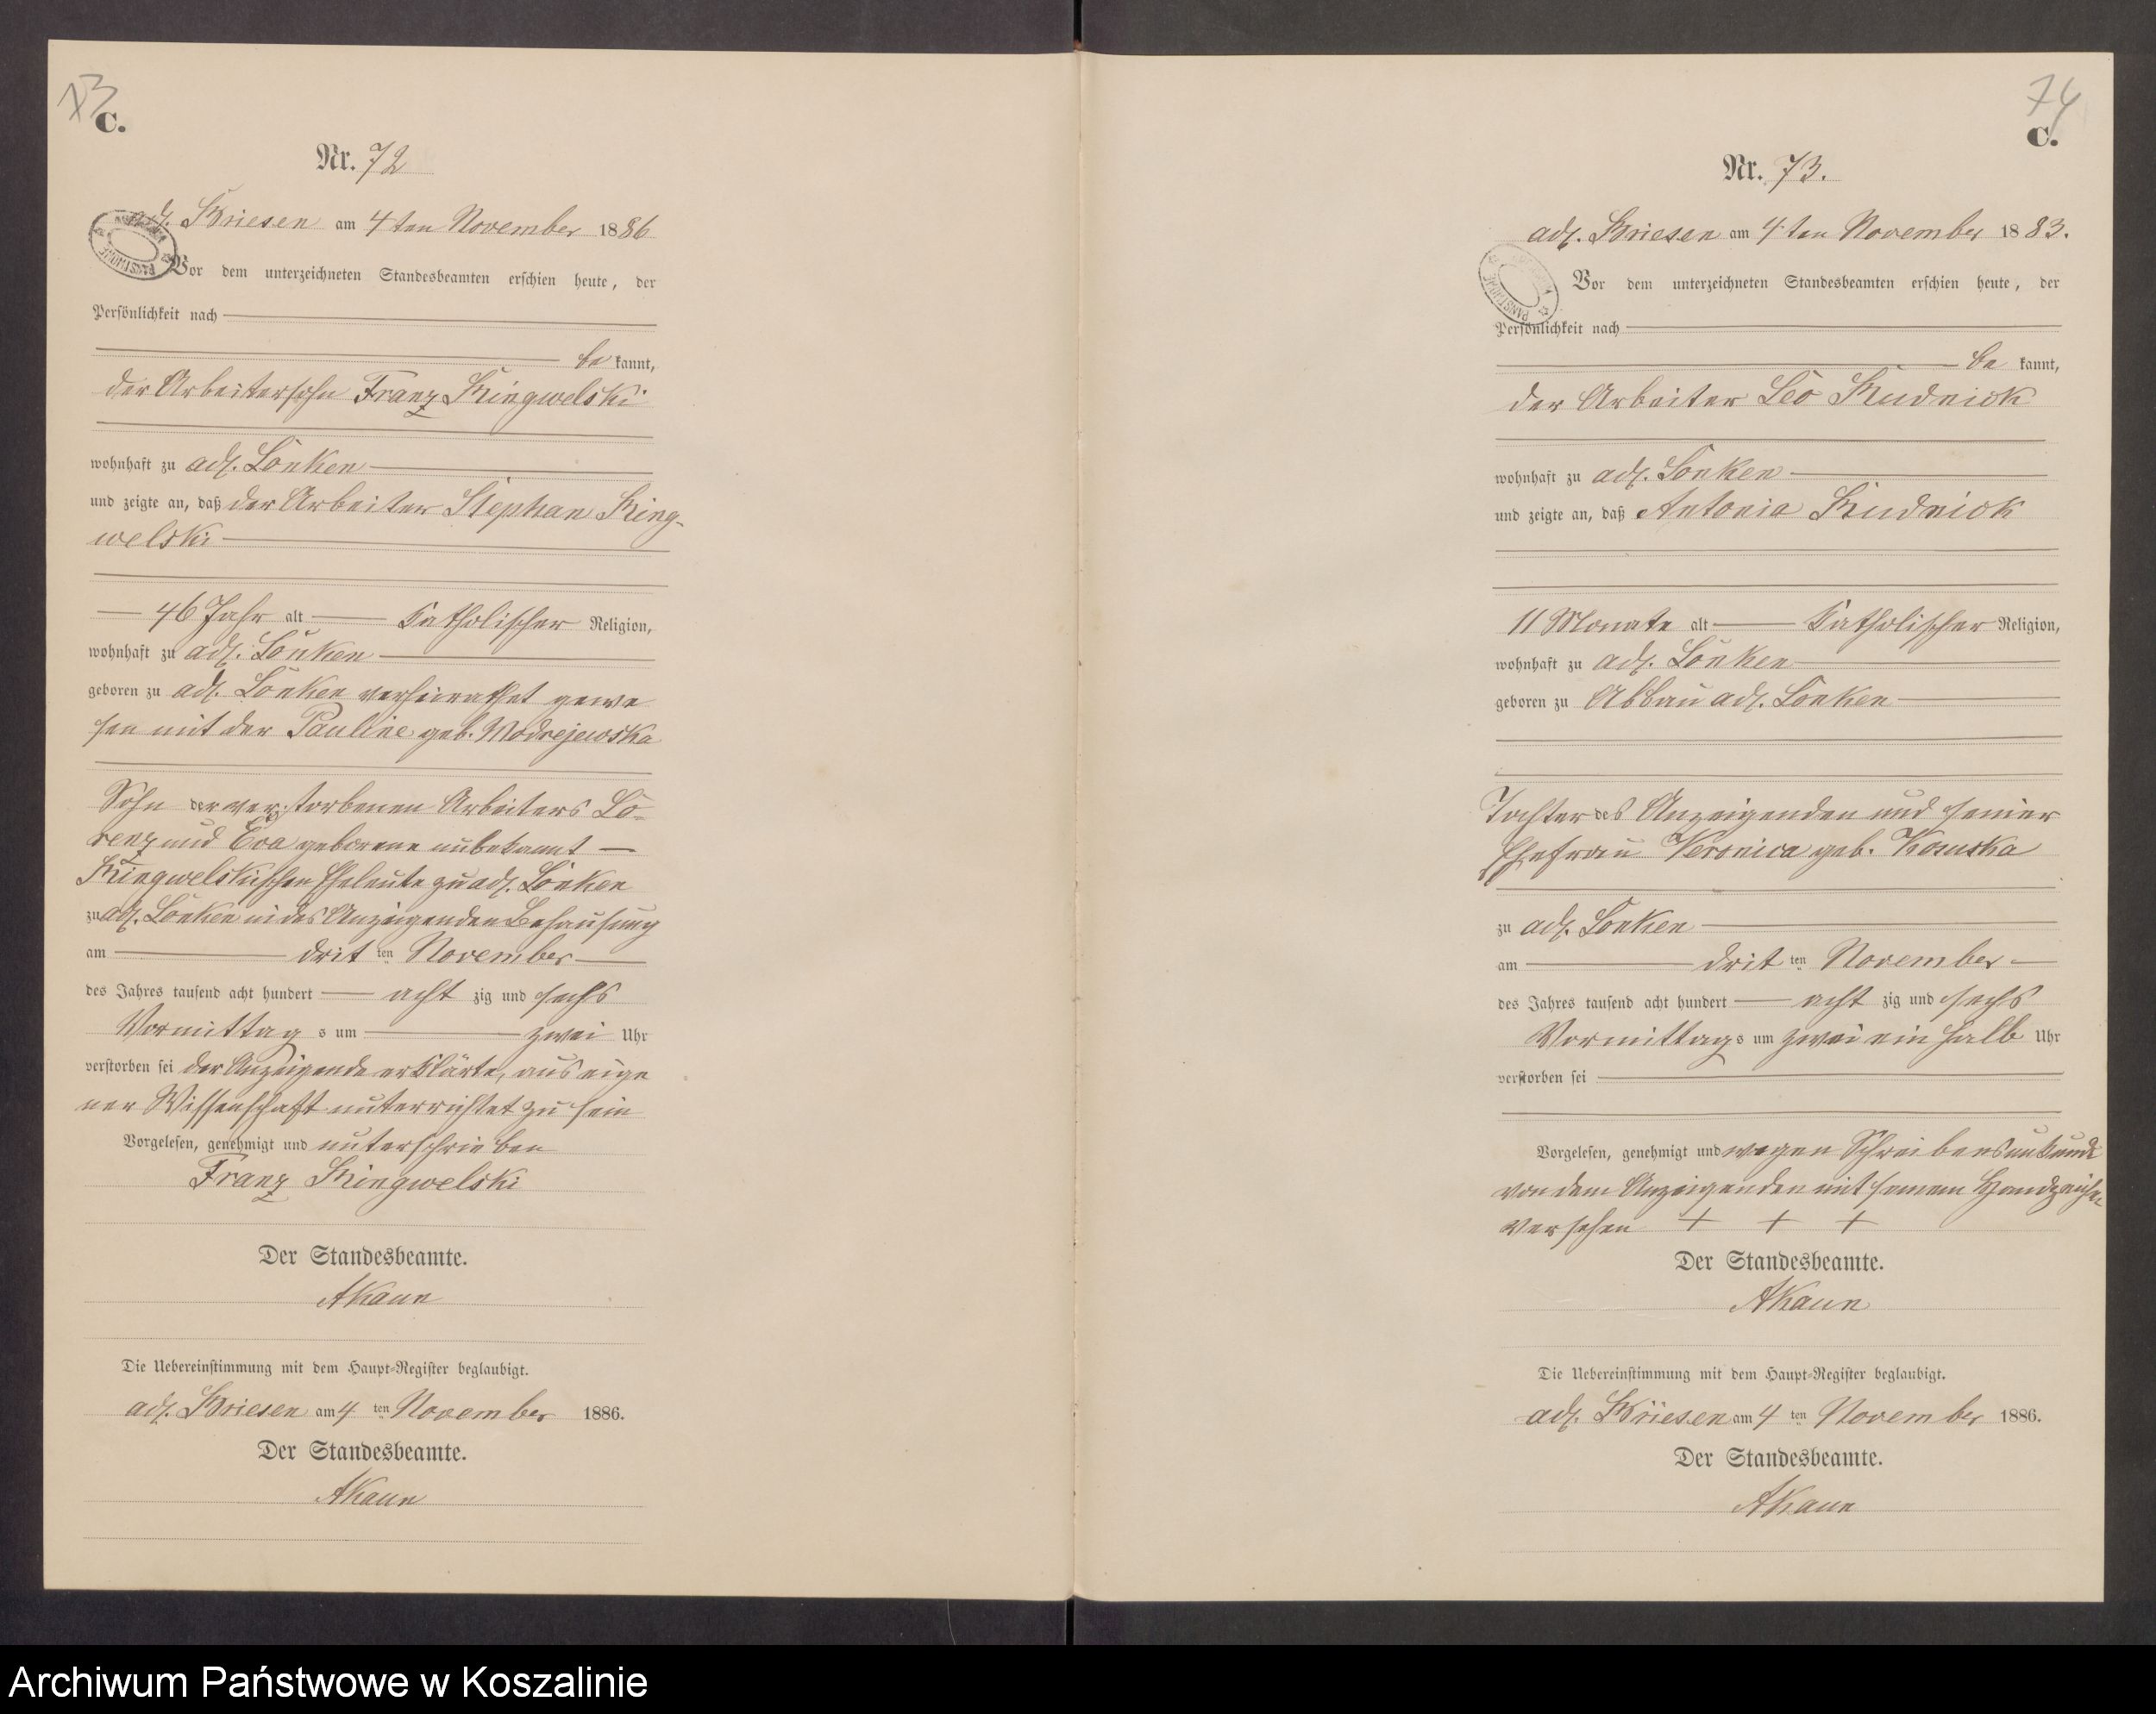 73
C.
Nr. 72
adl. Briesen am 4 ten November 1886
Vor dem unterzeichneten Standesbeamten erschien heute, der
Persönlichkeit nach
be kannt,
der Arbeitersohn Franz Kingwelski
wohnhaft zu adl. Lonken
und zeigte an, daß der Arbeiter Stephan King-
welski
46 Jahr alt Katholischer Religion,
wohnhaft zu adl. Lonken
geboren zu adl. Lonken verheirathet gewe
sen mit der Pauline geb. Modrejewska
Sohn der verstorbenen Arbeiters Lo-
renz und Eva geborene unbekannt
Kingwelskischen Eheleute zu adl. Lonken
zu adl. Lonken in des Anzeigenden Behausung
am drit ten November
des Jahres tausend acht hundert acht zig und sechs
Vormittag s um zwei Uhr
verstorben sei der Anzeigende erklärte, aus eige
ner Wissenschaft unterrichtet zu sein
Vorgelesen, genehmigt und unterschrieben
Franz Kingwelski
Der Standesbeamte.
AKaun
Die Uebereinstimmung mit dem Haupt-Register beglaubigt.
adl. Briesen am 4 ten November 1886.
Der Standesbeamte.
AKaun
74
C.
Nr. 73.
adl. Briesen am 4 ten November 1883.
Vor dem unterzeichneten Standesbeamten erschien heute, der
Persönlichkeit nach
be kannt,
der Arbeiter Leo Rudnick
wohnhaft zu adl. Lonken
und zeigte an, daß Antonia Rudnick
11 Monate alt Katholischer Religion,
wohnhaft zu adl. Lonken
geboren zu Abbau adl. Lonken
Tochter des Anzeigenden und seiner
Ehefrau Veronica geb.
zu adl. Lonken
am drit ten November
des Jahres tausend acht hundert acht zig und sechs
Vormittag s um zwei ein halb Uhr
verstorben sei
Vorgelesen, genehmigt und wegen Schreibensunkunde
von dem Anzeigenden mit seinem Handzeichen
versehen + + +
Der Standesbeamte.
AKaun
Die Uebereinstimmung mit dem Haupt-Register beglaubigt.
adl. Briesen am 4 ten November 1886.
Der Standesbeamte.
AKaun
Archiwum Państwowe w Koszalinie